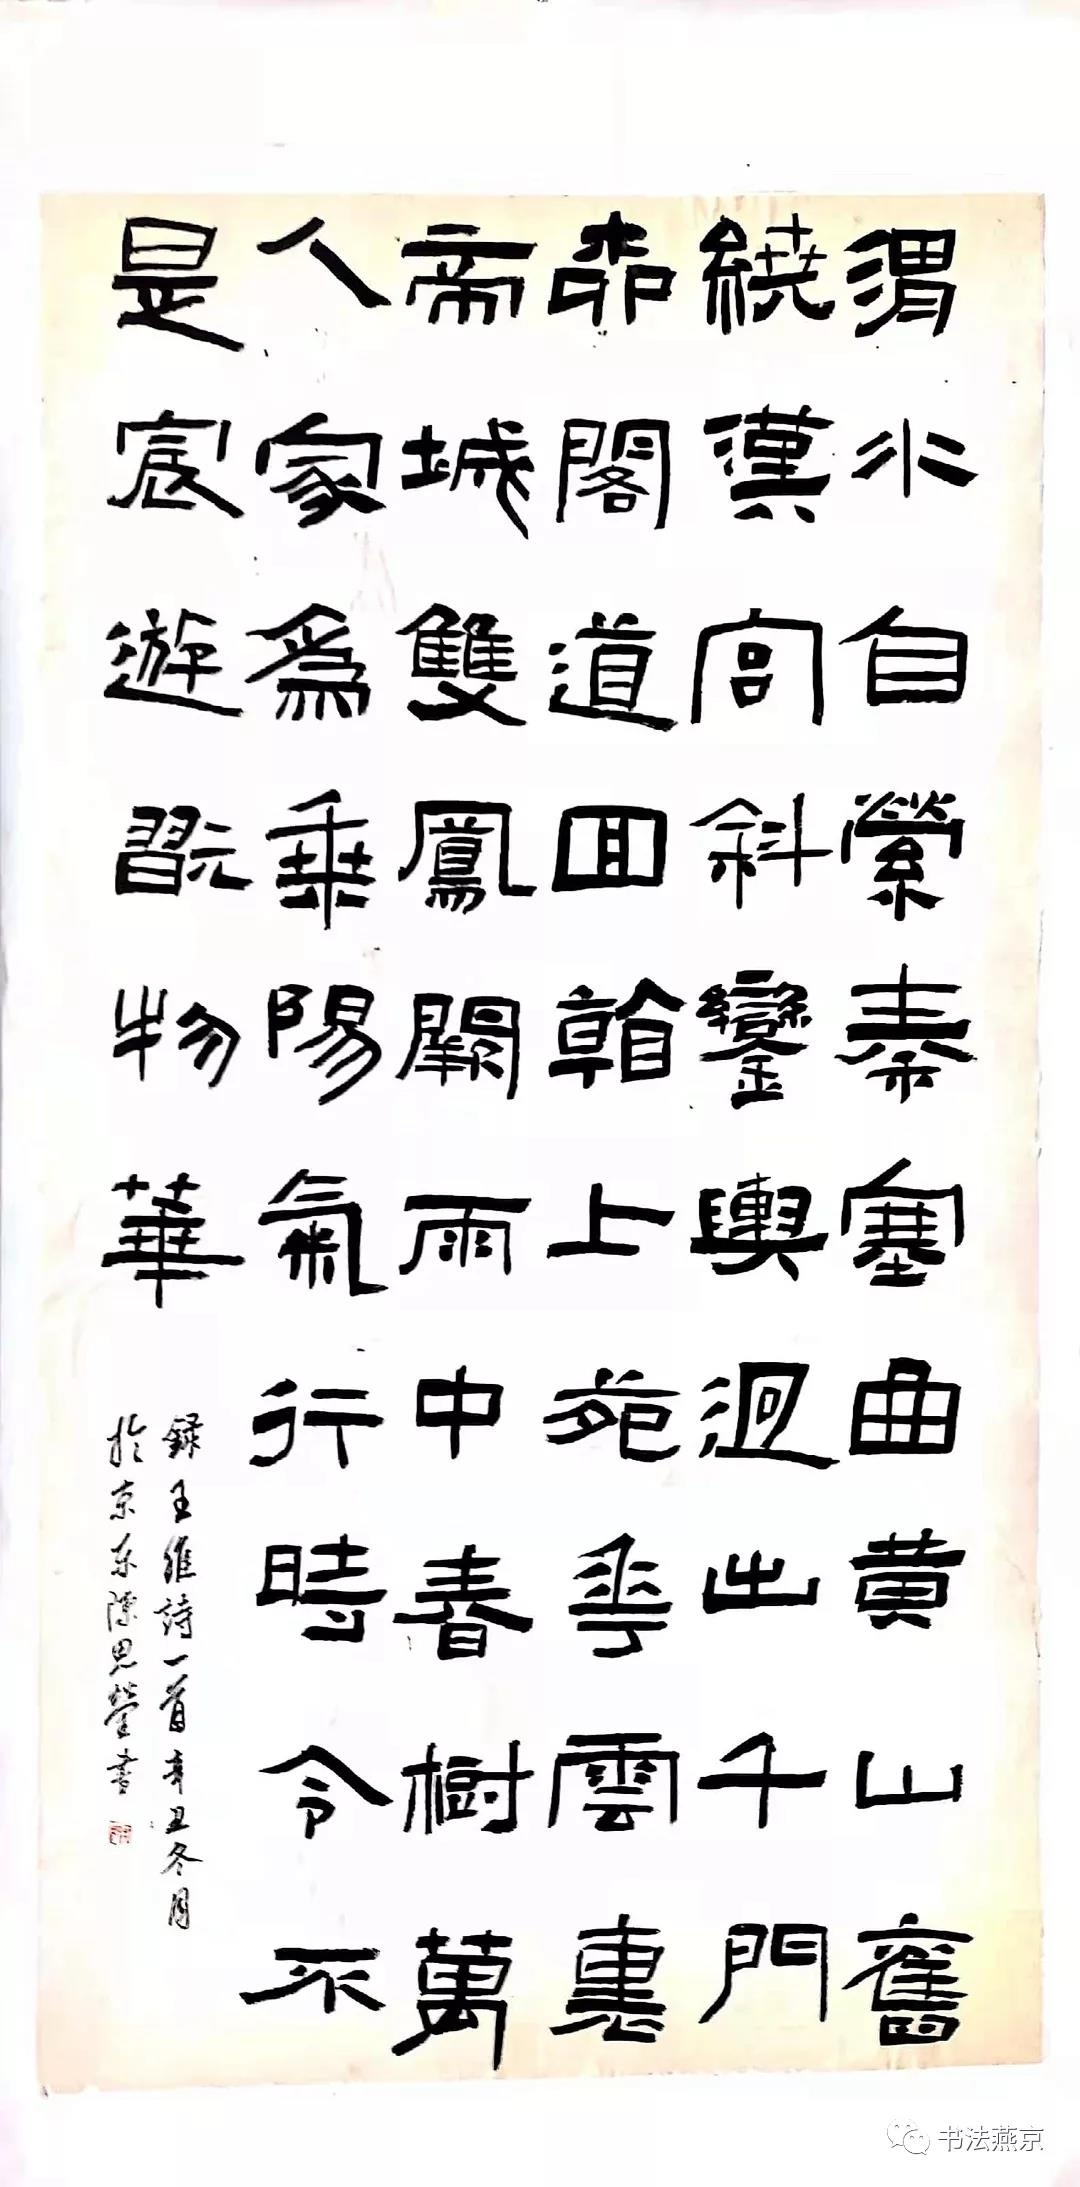 渭水自縈秦塞曲黄山舊
繞漢宮斜鑾輿迥出千門
柳閣道回看上苑花雲裏
帝城雙鳳闕雨中春樹萬
人家爲乘陽氣行時令不
是宸遊翫物華
録王維詩一首辛丑冬月
於京东陳思瑩書
书法燕京